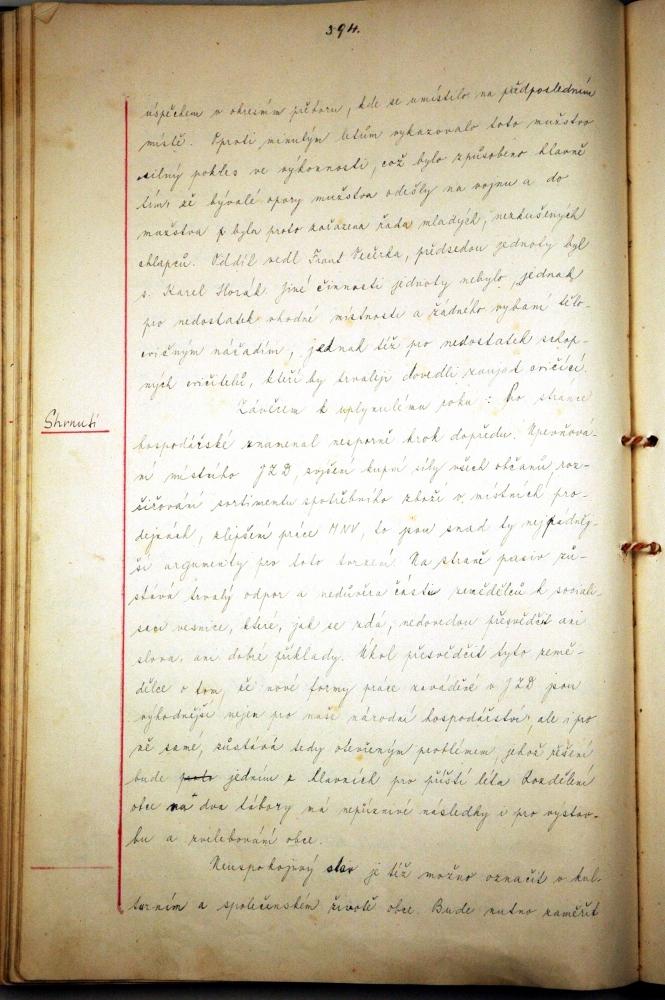 394.
úspěchem v okresním přeboru, kde se umístilo na předposledním
místě. Oproti minulým letům vykazovalo toto mužstvo
silný pokles ve výkonnosti, což bylo způsobeno hlavně
tím, že bývalé opory mužstva odešly na vojnu a do
mužstva byla proto zařazena řada mladých, nezkušených
chlapců. Oddíl vedl Frant Večerka, předsedou jednoty byl
s. Karel Horák. Jiné činnosti jednoty nebylo, jednak
pro nedostatek vhodné místnosti a žádného vybaní tělo-
cvičným nářadím, jednak též pro nedostatek schop-
ných cvičitelů, kteří by trvaleji dovedli zaujat cvičící.
Shrnutí
Závěrem k uplynulému roku: Po stránce
hospodářské znamenal nesporně krok dopředu. Upevňová-
ní místního JZD, zvýšení kupní síly všech občanů, roz-
šiřování sortimentu spotřebního zboží v místních pro-
dejnách, zlepšení práce MNV, to jsou snad ty nejpádněj-
ší argumenty pro toto tvrzení. Na straně pasiv zů-
stává trvalý odpor a nedůvěra části zemědělců k sociali-
saci vesnice, které, jak se zdá, nedovedou přesvědčit ani
slova, ani dobré příklady. Úkol přesvědčit tyto země-
dělce o tom, že nové formy práce zaváděné v JZD jsou
výhodnější nejen pro naše národní hospodářství, ale i pro
ně samé, zůstává tedy otevřeným problémem, jehož řešení
bude jedním z hlavních pro příští léta. Rozdělení
obce na dva tábory má nepříznivé následky i pro výstav-
bu a zvelebování obce.
Neuspokojivý stav je též možno označit v kul-
turním a společenském životě obce. Bude nutno zaměřit